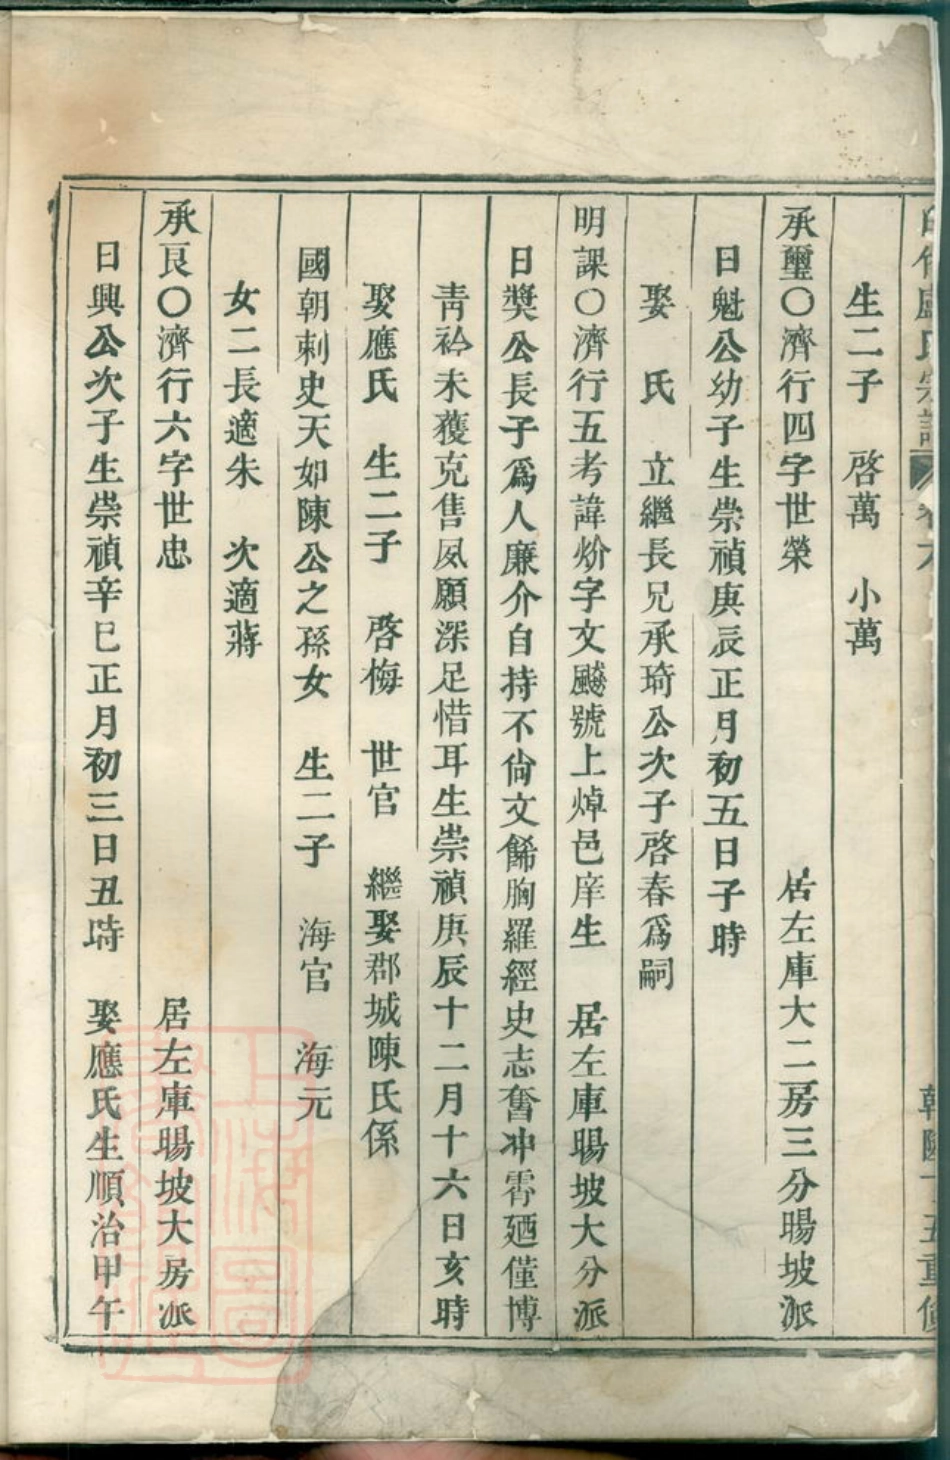 盧氏宗譜 卷六 乾隆丁五重修
生二子 啓萬 小萬
承璽〇濟行四字世榮 居左庫大二房三分暘坡派
日魁公幼子生崇禎庚辰正月初五日子時
娶 氏 立繼長兄承琦公次子啓春爲嗣
明課〇濟行五考諱炌字文飈號上焯邑庠生 居左庫暘坡大分派
日獎公長子爲人廉介自持不尙文餙胸羅經史志奮冲霄廼僅博
靑衿未獲克售夙願深足惜耳生崇禎庚辰十二月十六日亥時
娶應氏 生二子 啓梅 世官 繼娶郡城陳氏係
國朝刺史天如陳公之孫女 生二子 海官 海元
女二長適朱 次適蔣
承良〇濟行六字世忠 居左庫暘坡大房派
日興公次子生崇禎辛巳正月初三日丑時 娶應氏生順治甲午